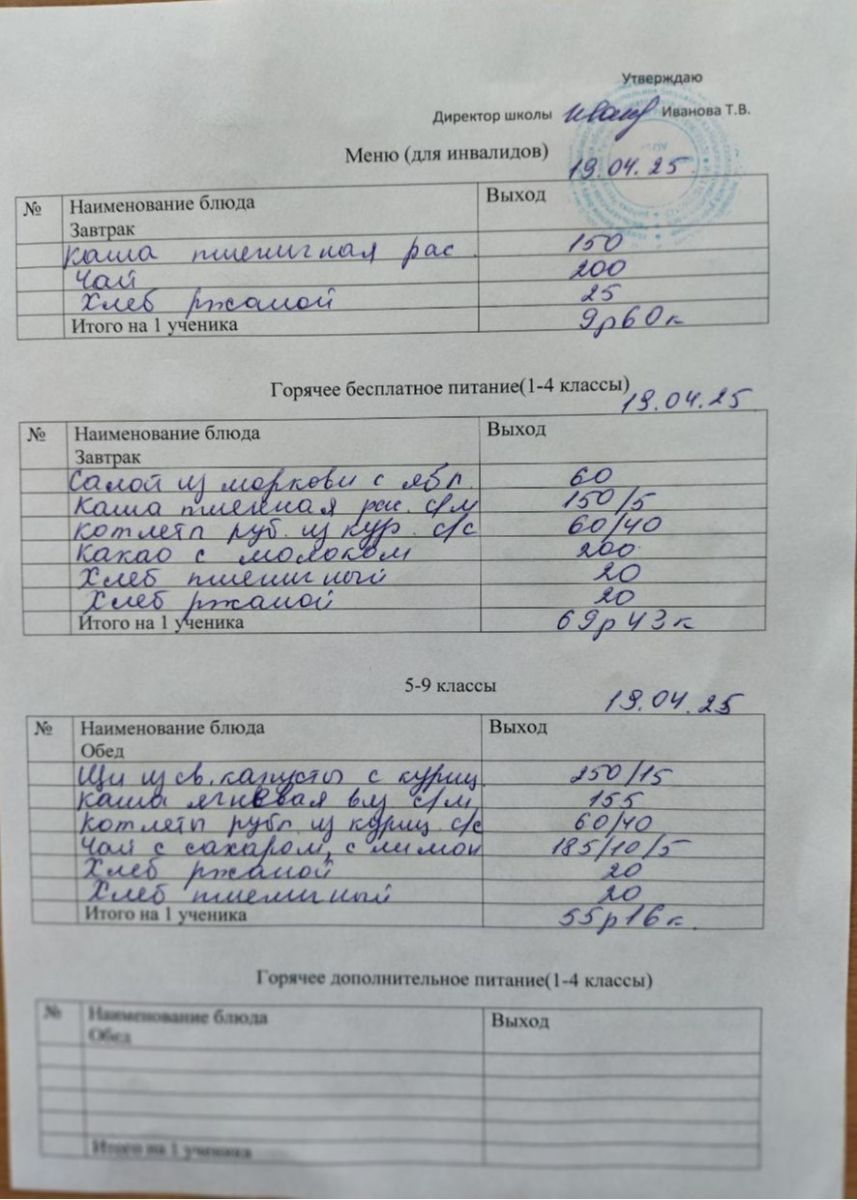 Утверждаю
Директор школы Иванова Т.В.
Меню (для инвалидов)
19.04.25.
№ Наименование блюда Выход
Завтрак
Каша пшеничная рас. 150
Чай 200
Хлеб ржаной 25
Итого на 1 ученика 9р60к
Горячее бесплатное питание(1-4 классы)
19.04.25
№ Наименование блюда Выход
Завтрак
Салат из моркови с ябл. 60
Каша пшенная рас. с/м 150/5
Котлеты руб. из кур. с/с 60/40
Какао с молоком 200
Хлеб пшеничный 20
Хлеб ржаной 20
Итого на 1 ученика 69р43к
5-9 классы
19.04.25
№ Наименование блюда Выход
Обед
Щи из св. капусты с куриц. 250/15
Каша ячневая вяз с/м 155
Котлеты рубл. из куриц. с/с 60/40
Чай с сахаром, с лимон 185/10/5
Хлеб ржаной 20
Хлеб пшеничный 20
Итого на 1 ученика 55р16к.
Горячее дополнительное питание(1-4 классы)
№ Наименование блюда Выход
Обед
Итого на 1 ученика